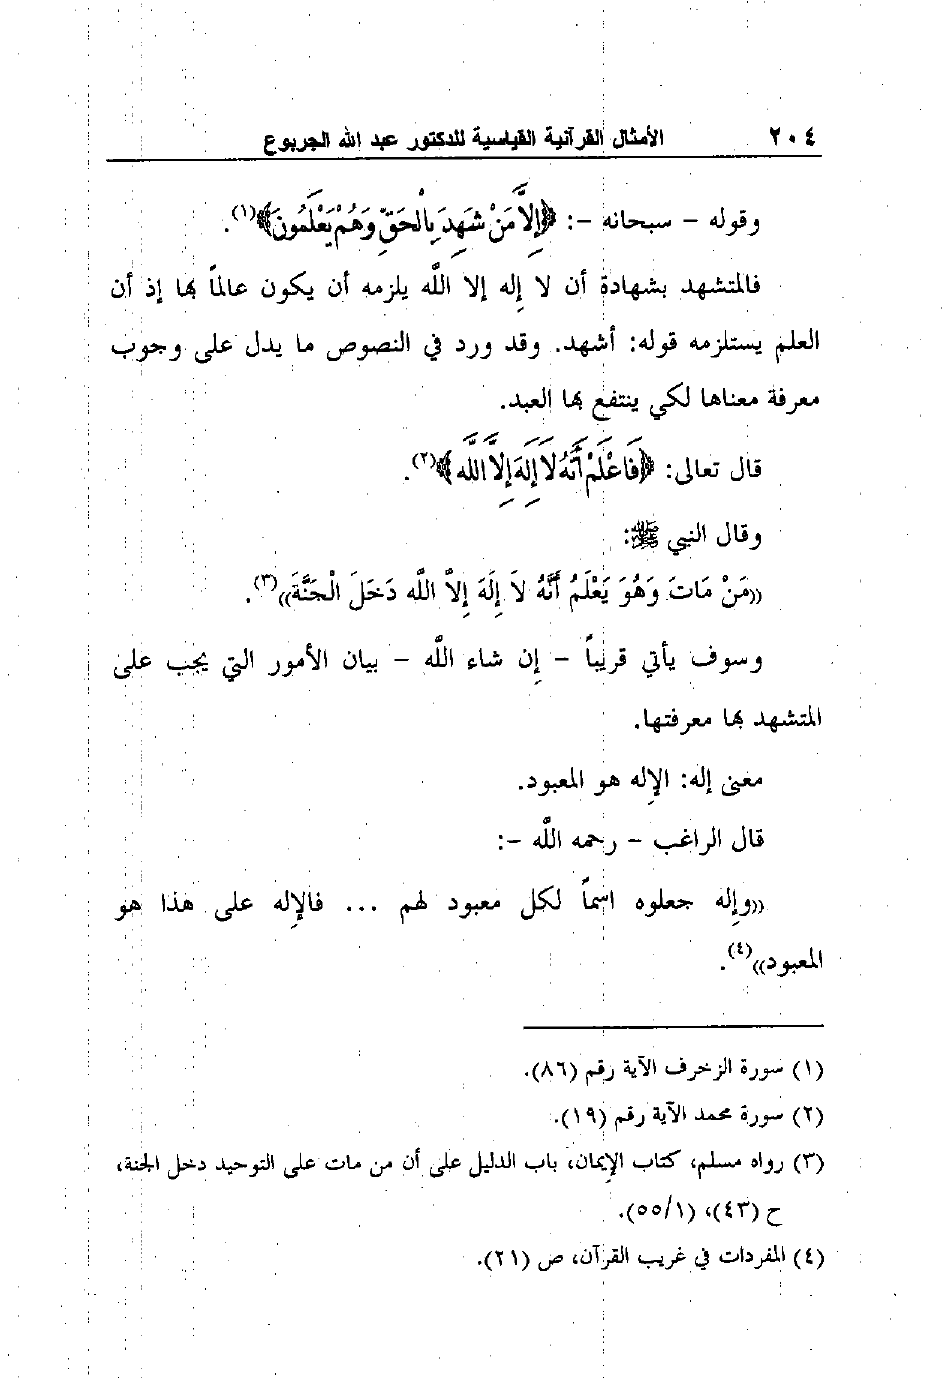 ٢٠٤ الأمثال القرآنية القياسية للدكتور عبد الله الجربوع
وقوله – سبحانه –: ﴿إِلاَّ مَنْ شَهِدَ بِالْحَقِّ وَهُمْ يَعْلَمُونَ﴾(١).
فالمتشهد بشهادة أن لا إله إلا اللَّه يلزمه أن يكون عالماً بها إذ أن
العلم يستلزمه قوله: أشهد. وقد ورد في النصوص ما يدل على وجوب
معرفة معناها لكي ينتفع بها العبد.
قال تعالى: ﴿فَاعْلَمْ أَنَّهُ لاَ إِلَهَ إِلاَّ اللَّه﴾(٢).
وقال النبي ﷺ:
((مَنْ مَاتَ وَهُوَ يَعْلَمُ أَنَّهُ لاَ إِلَهَ إِلاَّ اللَّه دَخَلَ الْجَنَّةَ))(٣).
وسوف يأتي قريباً – إن شاء اللَّه – بيان الأمور التي يجب على
المتشهد بها معرفتها.
معنى إله: الإله هو المعبود.
قال الراغب – رحمه اللَّه –:
((وإله جعلوه اسماً لكل معبود لهم ... فالإله على هذا هو
المعبود))(٤).
(١) سورة الزخرف الآية رقم (٨٦).
(٢) سورة محمد الآية رقم (١٩).
(٣) رواه مسلم، كتاب الإيمان، باب الدليل على أن من مات على التوحيد دخل الجنة،
ح (٤٣)، (٥٥/١).
(٤) المفردات في غريب القرآن، ص (٢١).